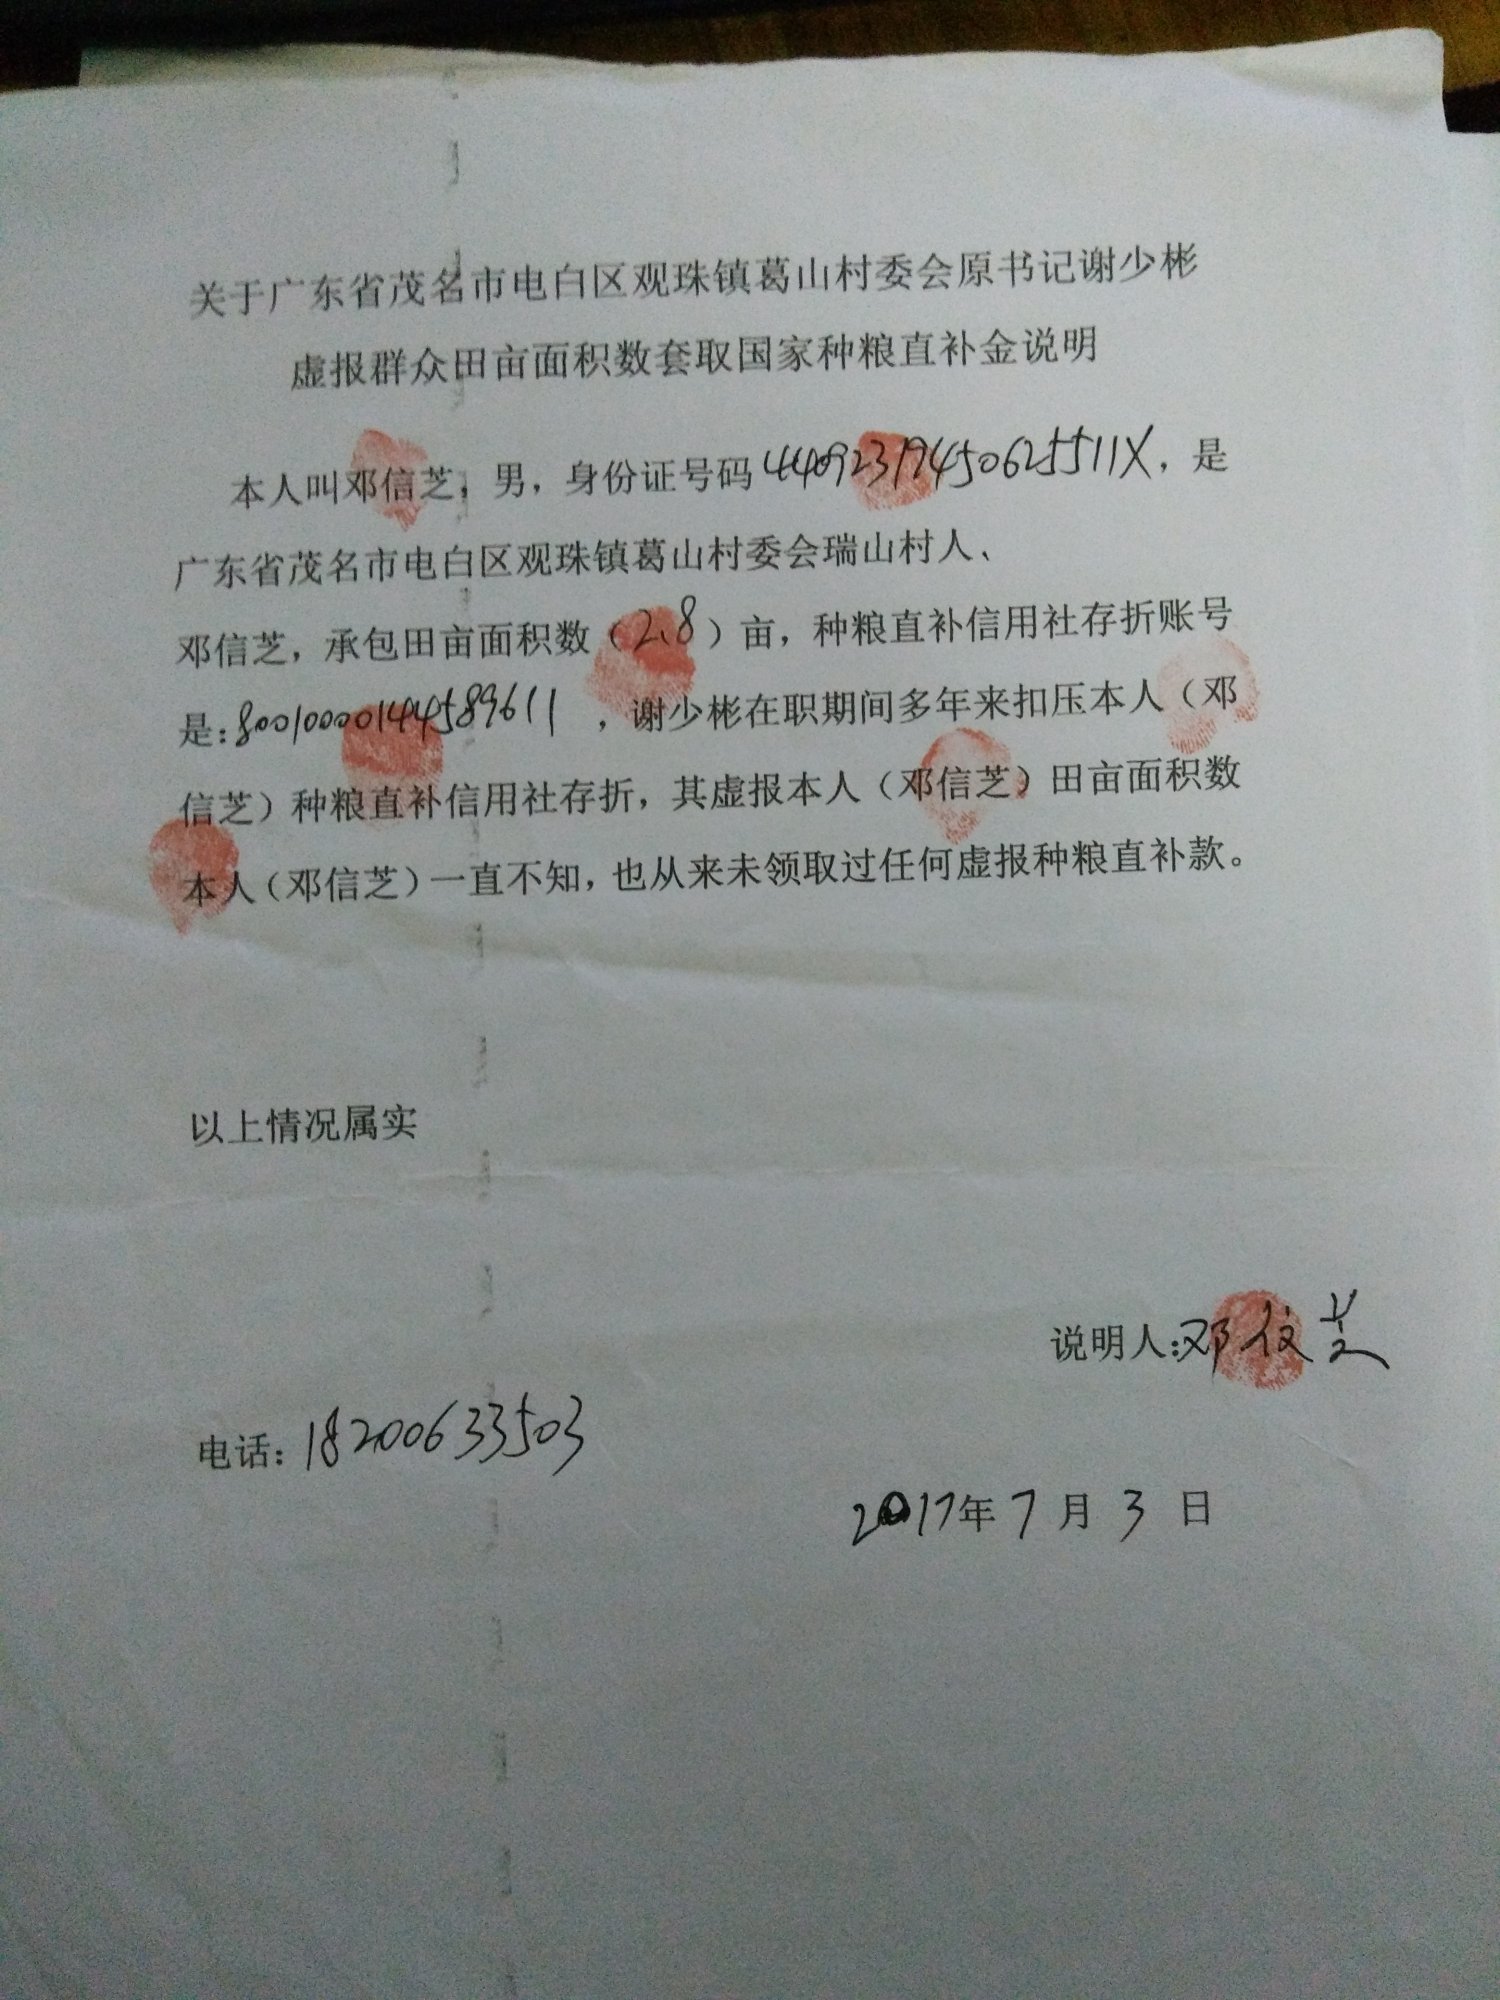 关于广东省茂名市电白区观珠镇葛山村委会原书记谢少彬
虚报群众田亩面积数套取国家种粮直补金说明
本人叫邓信芝，男，身份证号码44092319450625511X，是
广东省茂名市电白区观珠镇葛山村委会瑞山村人、
邓信芝，承包田亩面积数（2.8）亩，种粮直补信用社存折账号
是:80010000144589611，谢少彬在职期间多年来扣压本人（邓
信芝）种粮直补信用社存折，其虚报本人（邓信芝）田亩面积数
本人（邓信芝）一直不知，也从来未领取过任何虚报种粮直补款。
以上情况属实
说明人:邓信芝
电话: 18200633503
2017年7月3日